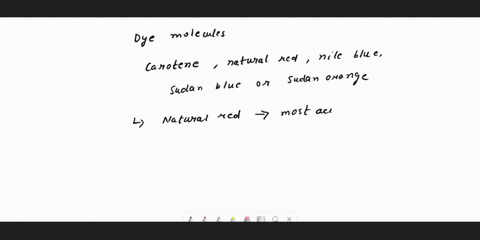 Dye molecules
Carotene, natural red, nile blue,
Sudan blue or Sudan orange
↳ Natural red → most acc